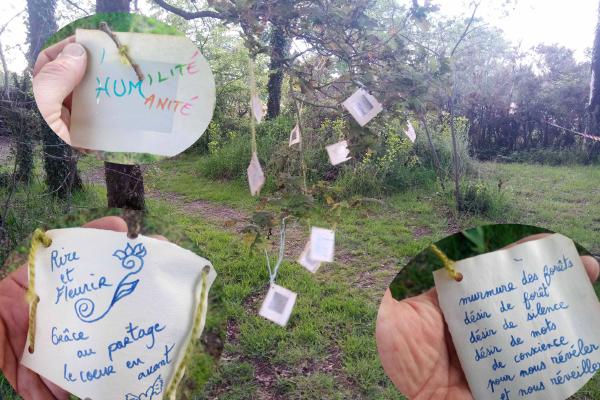 HUMILITÉ
ANITÉ
Rire
et
Fleurir
Grâce
au partage
le coeur en avant
murmure des forêts
désir de forêt
désir de silence
désir de mots
de conscience
pour nous révéler
et nous réveiller